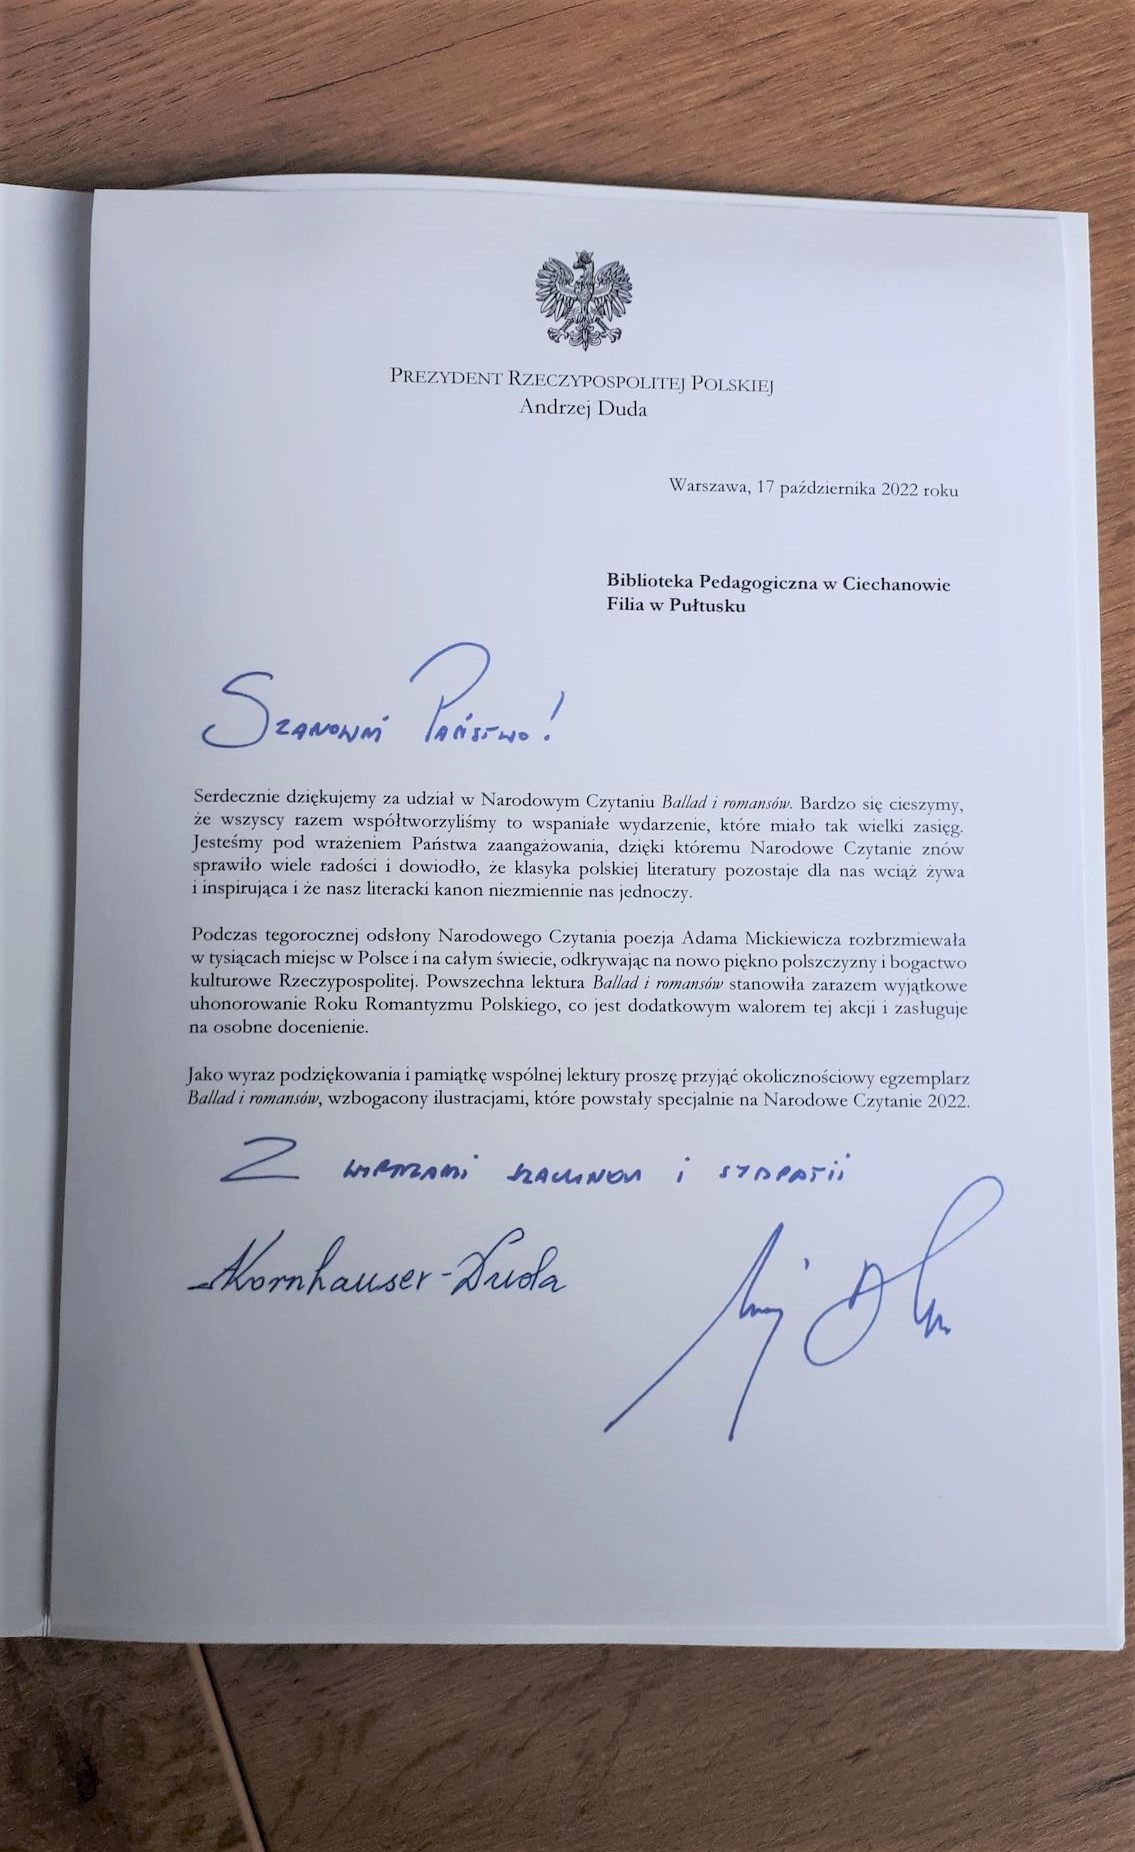 PREZYDENT RZECZYPOSPOLITEJ POLSKIEJ
Andrzej Duda
Warszawa, 17 października 2022 roku
Biblioteka Pedagogiczna w Ciechanowie
Filia w Pułtusku
Szanowni Państwo!
Serdecznie dziękujemy za udział w Narodowym Czytaniu Ballad i romansów. Bardzo się cieszymy,
że wszyscy razem współtworzyliśmy to wspaniałe wydarzenie, które miało tak wielki zasięg.
Jesteśmy pod wrażeniem Państwa zaangażowania, dzięki któremu Narodowe Czytanie znów
sprawiło wiele radości i dowiodło, że klasyka polskiej literatury pozostaje dla nas wciąż żywa
i inspirująca i że nasz literacki kanon niezmiennie nas jednoczy.
Podczas tegorocznej odsłony Narodowego Czytania poezja Adama Mickiewicza rozbrzmiewała
w tysiącach miejsc w Polsce i na całym świecie, odkrywając na nowo piękno polszczyzny i bogactwo
kulturowe Rzeczypospolitej. Powszechna lektura Ballad i romansów stanowiła zarazem wyjątkowe
uhonorowanie Roku Romantyzmu Polskiego, co jest dodatkowym walorem tej akcji i zasługuje
na osobne docenienie.
Jako wyraz podziękowania i pamiątkę wspólnej lektury proszę przyjąć okolicznościowy egzemplarz
Ballad i romansów, wzbogacony ilustracjami, które powstały specjalnie na Narodowe Czytanie 2022.
Z wyrazami szacunku i sympatii
AKornhauser-Duda